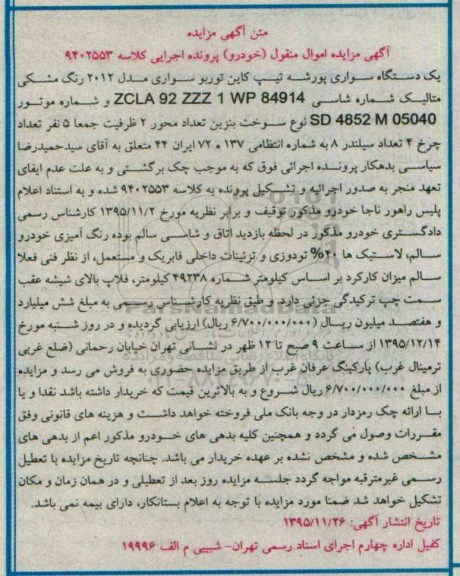 متن آگهی مزایده
آگهی مزایده اموال منقول (خودرو) پرونده اجرایی کلاسه ۹۴۰۲۵۵۳
یک دستگاه سواری پورشه تیپ کاین توربو سواری مدل ۲۰۱۲ رنگ مشکی
متالیک شماره شاسی ZCLA 92 ZZZ 1 WP 84914 و شماره موتور
SD 4852 M 05040 نوع سوخت بنزین تعداد محور ۲ ظرفیت جمعا ۵ نفر تعداد
چرخ ۴ تعداد سیلندر ۸ به شماره انتظامی ۱۳۷ه۷۲ ایران ۴۴ متعلق به آقای سیدحمیدرضا
سیاسی بدهکار پرونده اجرائی فوق که به موجب چک برگشتی و به علت عدم ایفای
تعهد منجر به صدور اجرائیه و تشکیل پرونده به کلاسه ۹۴۰۲۵۵۳ شده و به استناد اعلام
پلیس راهور ناجا خودرو مذکور توقیف و برابر نظریه مورخ ۱۳۹۵/۱۱/۲ کارشناس رسمی
دادگستری خودرو مذکور در لحظه بازدید اتاق و شاسی سالم بوده رنگ آمیزی خودرو
سالم، لاستیک ها ۴۰% تودوزی و تزئینات داخلی فابریک و مستعمل، از نظر فنی فعلا
سالم میزان کارکرد بر اساس کیلومتر شماره ۴۹۲۳۸ کیلومتر، فلاپ بالای شیشه عقب
سمت چپ ترکیدگی جزئی دارد. و طبق نظریه کارشناس رسمی به مبلغ شش میلیارد
و هفتصد میلیون ریال (۶/۷۰۰/۰۰۰/۰۰۰ ریال) ارزیابی گردیده و در روز شنبه مورخ
۱۳۹۵/۱۲/۱۴ از ساعت ۹ صبح تا ۱۲ ظهر در نشانی تهران خیابان رحمانی (ضلع غربی
ترمینال غرب) پارکینگ عرفان غرب از طریق مزایده حضوری به فروش می رسد و مزایده
از مبلغ ۶/۷۰۰/۰۰۰/۰۰۰ ریال شروع و به بالاترین قیمت که خریدار داشته باشد نقدا و یا
با ارائه چک رمزدار در وجه بانک ملی فروخته خواهد داشت و هزینه های قانونی وفق
مقررات وصول می گردد و همچنین کلیه بدهی های خودرو مذکور اعم از بدهی های
مشخص شده و مشخص نشده بر عهده خریدار می باشد. چنانچه تاریخ مزایده با تعطیل
رسمی غیرمترقبه مواجه گردد جلسه مزایده روز بعد از تعطیلی و در همان زمان و مکان
تشکیل خواهد شد ضمنا مورد مزایده با توجه به اعلام بستانکار، دارای بیمه نمی باشد.
تاریخ انتشار آگهی: ۱۳۹۵/۱۱/۲۶
کفیل اداره چهارم اجرای اسناد رسمی تهران- شبیی م الف ۱۹۹۹۶